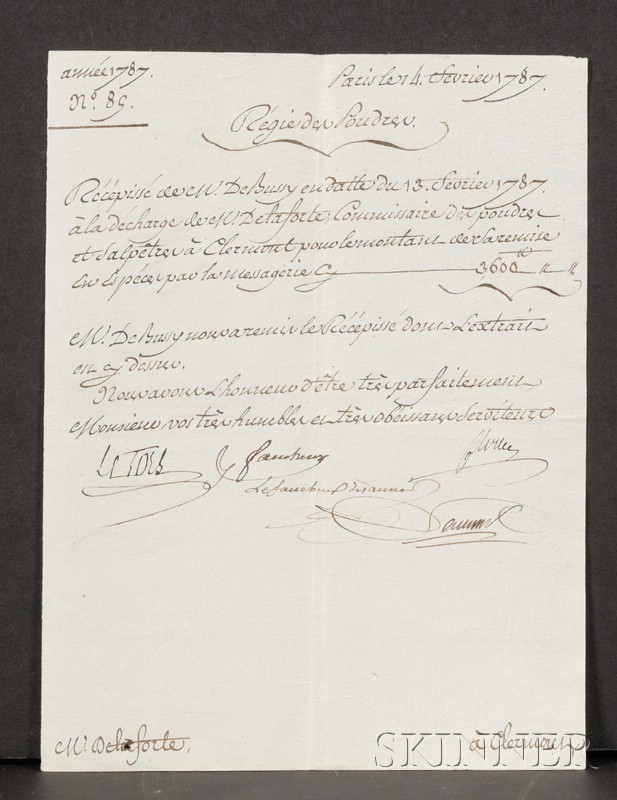 année 1787.
Paris le 14. fevrier 1787.
N.° 89.
Régie des Poudres.
Récépissé de M. De Bussy en datte du 13. fevrier 1787.
à la décharge de M. Delaforte, Commissaire des poudres
et Salpêtres à Clermont pour le montant de sa remise
en Espéces par la messagerie Cy 3,600 "  "
M. De Bussy nous a remis le Récépissé dont L'extrait
est cy dessus.
Nous avons L'honneur d'être très parfaitement
Monsieur, vos très humbles et très obéissans Serviteurs
Le faucheux
Le faucheux des aunois
M. Delaforte.
à Clermont
SKINNER